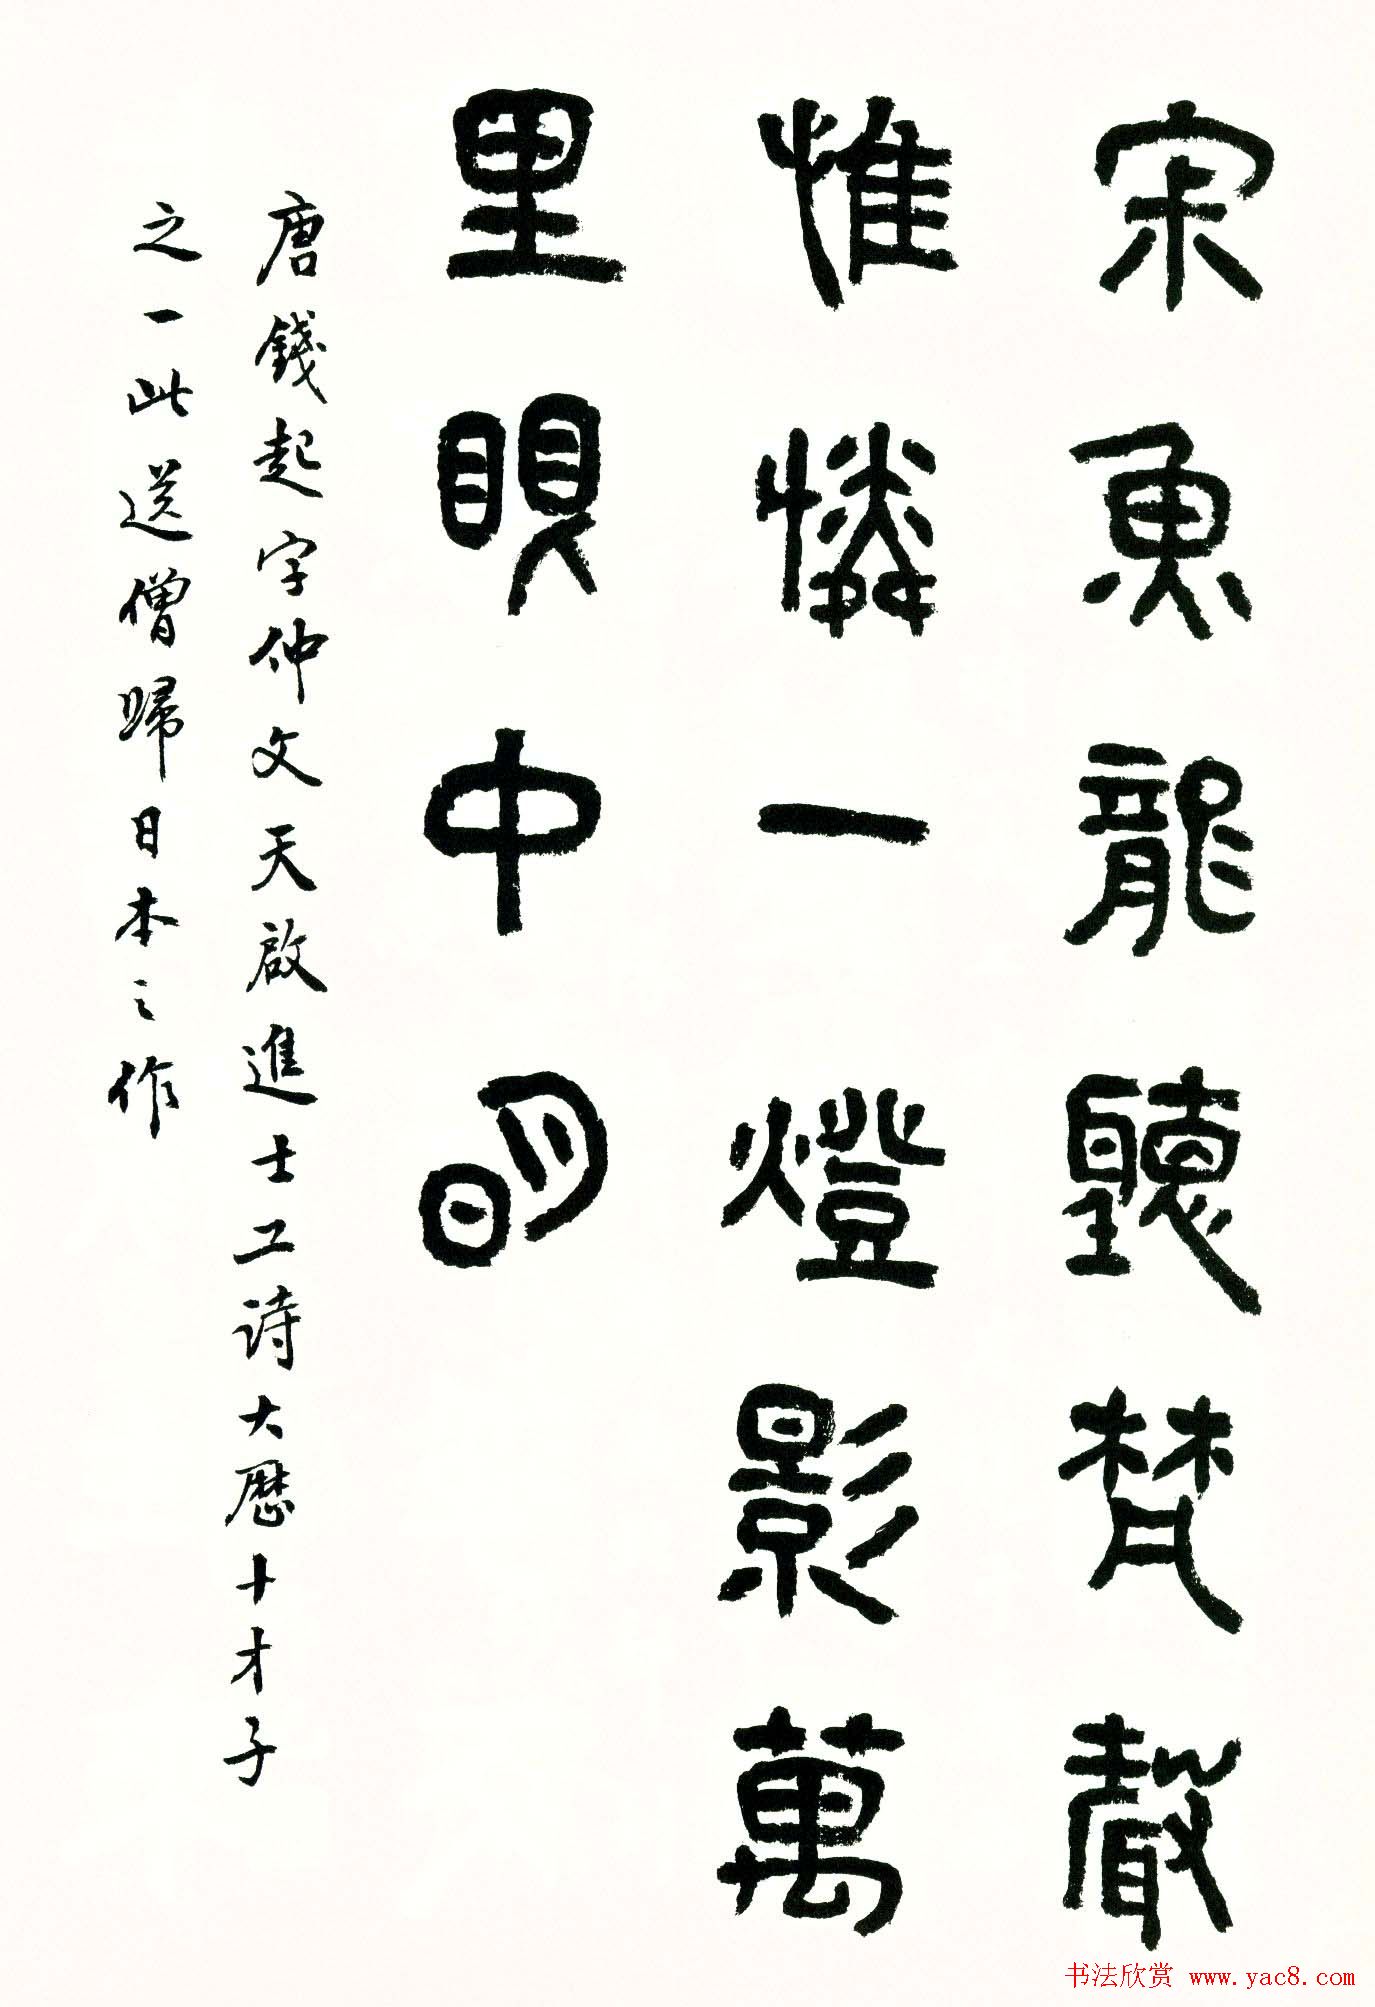 寂魚龍聽梵聲
惟憐一燈影萬
里眼中明
唐錢起字仲文天啟進士工詩大歷十才子
之一此送僧歸日本之作
书法欣赏 www.yac8.com